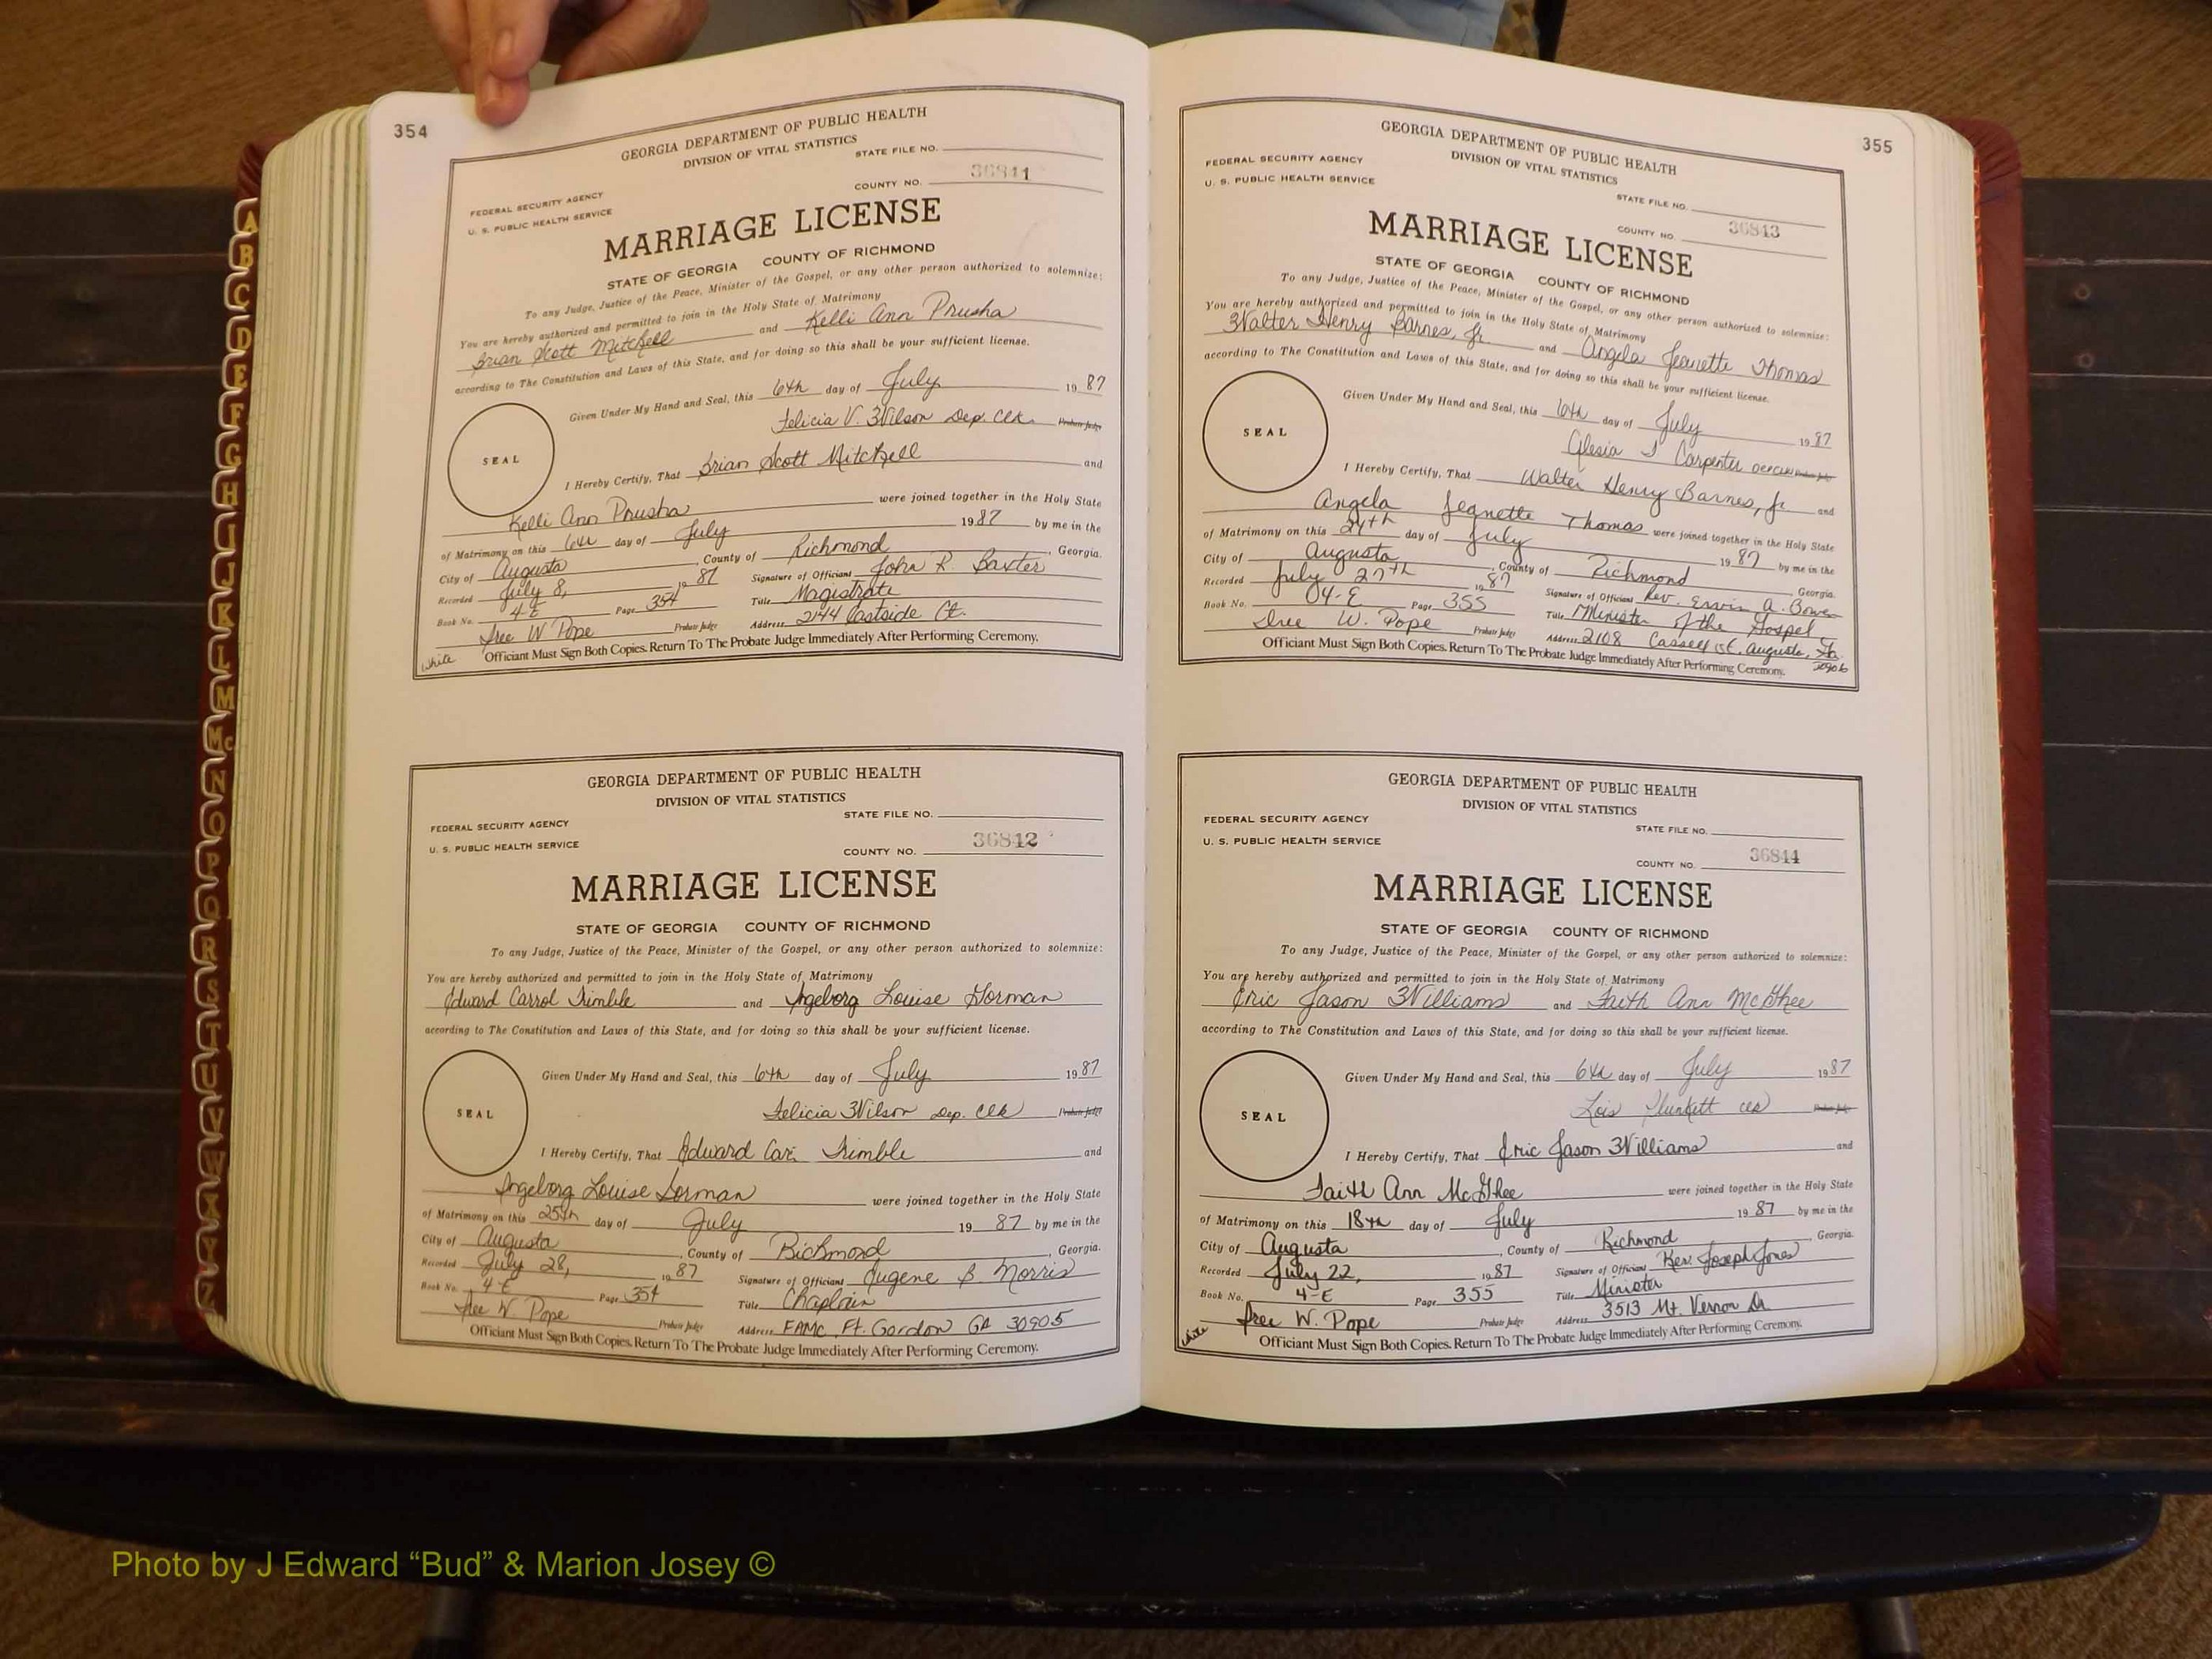 354
GEORGIA DEPARTMENT OF PUBLIC HEALTH
DIVISION OF VITAL STATISTICS
STATE FILE NO.
FEDERAL SECURITY AGENCY
COUNTY NO. 36841
U. S. PUBLIC HEALTH SERVICE
MARRIAGE LICENSE
STATE OF GEORGIA COUNTY OF RICHMOND
To any Judge, Justice of the Peace, Minister of the Gospel, or any other person authorized to solemnize:
You are hereby authorized and permitted to join in the Holy State of Matrimony
Brian Scott Mitchell and Kelli Ann Prusha
according to The Constitution and Laws of this State, and for doing so this shall be your sufficient license.
Given Under My Hand and Seal, this 6th day of July 1987
Felicia V. Wilson Dep. Clk. Probate Judge
SEAL
I Hereby Certify, That Brian Scott Mitchell and
Kelli Ann Prusha were joined together in the Holy State
of Matrimony on this 6th day of July 1987 by me in the
City of Augusta, County of Richmond, Georgia.
Recorded July 8, 1987 Signature of Officiant John R. Baxter
Book No. 4-E Page 354 Title Magistrate
Iree W Pope Probate Judge Address 2144 Eastside Ct.
White Officiant Must Sign Both Copies. Return To The Probate Judge Immediately After Performing Ceremony.
GEORGIA DEPARTMENT OF PUBLIC HEALTH
DIVISION OF VITAL STATISTICS
STATE FILE NO.
FEDERAL SECURITY AGENCY
U. S. PUBLIC HEALTH SERVICE
COUNTY NO. 36842
MARRIAGE LICENSE
STATE OF GEORGIA COUNTY OF RICHMOND
To any Judge, Justice of the Peace, Minister of the Gospel, or any other person authorized to solemnize:
You are hereby authorized and permitted to join in the Holy State of Matrimony
Edward Carrol Trimble and Ingeborg Louise Gorman
according to The Constitution and Laws of this State, and for doing so this shall be your sufficient license.
Given Under My Hand and Seal, this 6th day of July 1987
Felicia Wilson Dep. Clk Probate Judge
SEAL
I Hereby Certify, That Edward Trimble and
Ingeborg Louise Gorman were joined together in the Holy State
of Matrimony on this 25th day of July 1987 by me in the
City of Augusta, County of Richmond, Georgia.
Recorded July 28, 1987 Signature of Officiant Eugene B. Norris
Book No. 4-E Page 354 Title Chaplain
Iree W. Pope Probate Judge Address EAMC Ft. Gordon GA 30905
Officiant Must Sign Both Copies. Return To The Probate Judge Immediately After Performing Ceremony.
355
GEORGIA DEPARTMENT OF PUBLIC HEALTH
DIVISION OF VITAL STATISTICS
FEDERAL SECURITY AGENCY
U. S. PUBLIC HEALTH SERVICE
STATE FILE NO.
COUNTY NO. 36843
MARRIAGE LICENSE
STATE OF GEORGIA COUNTY OF RICHMOND
To any Judge, Justice of the Peace, Minister of the Gospel, or any other person authorized to solemnize:
You are hereby authorized and permitted to join in the Holy State of Matrimony
Walter Henry Barnes, Jr. and Angela Jeanette Thomas
according to The Constitution and Laws of this State, and for doing so this shall be your sufficient license.
Given Under My Hand and Seal, this 6th day of July 1987
Glesia Carpenter Probate Judge
SEAL
I Hereby Certify, That Walter Henry Barnes, Jr. and
Angela Jeanette Thomas were joined together in the Holy State
of Matrimony on this day of July 1987 by me in the
City of Augusta, County of Richmond Georgia.
Recorded July 27th 1987 Signature of Officiant Rev. A. Bowen
Book No. 04-E Page 355 Title Minister of the Gospel
Iree W. Pope Probate Judge Address 2108 Cassell St. Augusta, Ga. 30906
Officiant Must Sign Both Copies. Return To The Probate Judge Immediately After Performing Ceremony.
GEORGIA DEPARTMENT OF PUBLIC HEALTH
DIVISION OF VITAL STATISTICS
FEDERAL SECURITY AGENCY
STATE FILE NO.
U. S. PUBLIC HEALTH SERVICE
COUNTY NO. 36844
MARRIAGE LICENSE
STATE OF GEORGIA COUNTY OF RICHMOND
To any Judge, Justice of the Peace, Minister of the Gospel, or any other person authorized to solemnize:
You are hereby authorized and permitted to join in the Holy State of Matrimony
Eric Jason Williams and Faith Ann McGhee
according to The Constitution and Laws of this State, and for doing so this shall be your sufficient license.
Given Under My Hand and Seal, this 6th day of July 1987
Lois Plunkett Clk Probate Judge
SEAL
I Hereby Certify, That Eric Jason Williams and
Faith Ann McGhee were joined together in the Holy State
of Matrimony on this 18th day of July 1987 by me in the
City of Augusta, County of Richmond, Georgia.
Recorded July 22, 1987 Signature of Officiant Rev. Joseph Jones
Book No. 4-E Page 355 Title Minister
Iree W. Pope Probate Judge Address 3513 Mt. Vernon Dr
White Officiant Must Sign Both Copies. Return To The Probate Judge Immediately After Performing Ceremony.
A
B
C
D
E
F
G
H
I
J
K
L
M
Mc
N
O
P
Q
R
S
T
U
V
W
X
Y
Z
Photo by J Edward “Bud” & Marion Josey ©